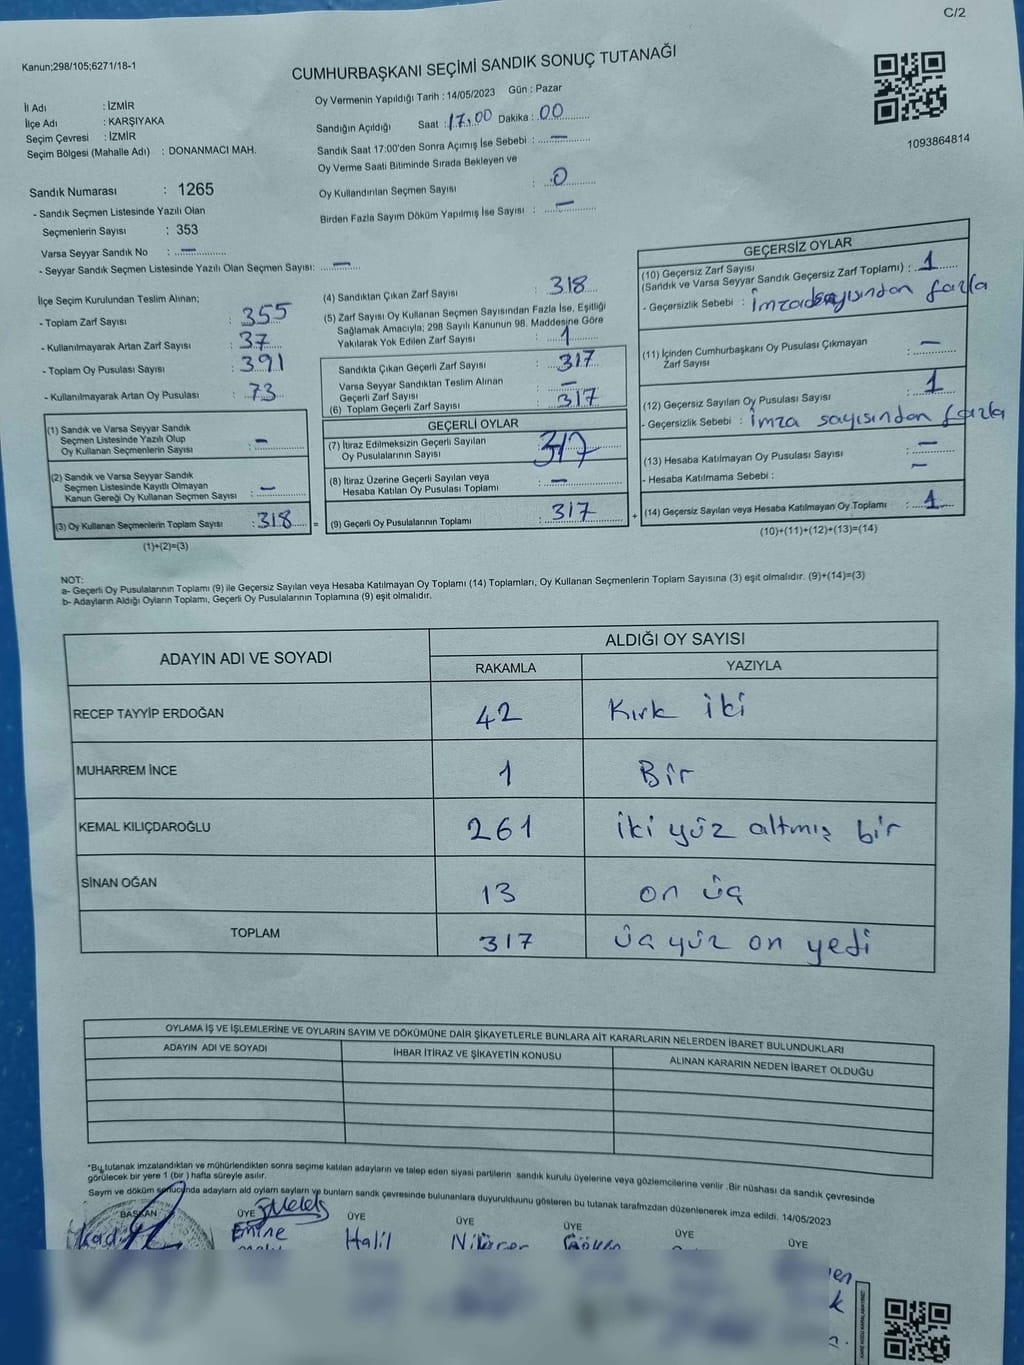 C/2
Kanun;298/105;6271/18-1
CUMHURBAŞKANI SEÇİMİ SANDIK SONUÇ TUTANAĞI
1093864814
İl Adı : İZMİR
İlçe Adı : KARŞIYAKA
Seçim Çevresi : İZMİR
Seçim Bölgesi (Mahalle Adı) : DONANMACI MAH.
Oy Vermenin Yapıldığı Tarih : 14/05/2023 Gün : Pazar
Sandığın Açıldığı Saat : 17.00 Dakika : 00
Sandık Saat 17:00'den Sonra Açımış İse Sebebi : —
Oy Verme Saati Bitiminde Sırada Bekleyen ve
Oy Kullandırılan Seçmen Sayısı : 0
Birden Fazla Sayım Döküm Yapılmış İse Sayısı : —
Sandık Numarası : 1265
- Sandık Seçmen Listesinde Yazılı Olan
Seçmenlerin Sayısı : 353
Varsa Seyyar Sandık No : —
- Seyyar Sandık Seçmen Listesinde Yazılı Olan Seçmen Sayısı: —
İlçe Seçim Kurulundan Teslim Alınan;
- Toplam Zarf Sayısı : 355
- Kullanılmayarak Artan Zarf Sayısı : 37
- Toplam Oy Pusulası Sayısı : 391
- Kullanılmayarak Artan Oy Pusulası : 73
(1) Sandık ve Varsa Seyyar Sandık
Seçmen Listesinde Yazılı Olup
Oy Kullanan Seçmenlerin Sayısı : —
(2) Sandık ve Varsa Seyyar Sandık
Seçmen Listesinde Kayıtlı Olmayan
Kanun Gereği Oy Kullanan Seçmen Sayısı : —
(3) Oy Kullanan Seçmenlerin Toplam Sayısı : 318 =
(1)+(2)=(3)
(4) Sandıktan Çıkan Zarf Sayısı : 318
(5) Zarf Sayısı Oy Kullanan Seçmen Sayısından Fazla İse, Eşitliği
Sağlamak Amacıyla; 298 Sayılı Kanunun 98. Maddesine Göre
Yakılarak Yok Edilen Zarf Sayısı : 1
Sandıkta Çıkan Geçerli Zarf Sayısı : 317
Varsa Seyyar Sandıktan Teslim Alınan
Geçerli Zarf Sayısı : —
(6) Toplam Geçerli Zarf Sayısı : 317
GEÇERLİ OYLAR
(7) İtiraz Edilmeksizin Geçerli Sayılan
Oy Pusulalarının Sayısı : 317
(8) İtiraz Üzerine Geçerli Sayılan veya
Hesaba Katılan Oy Pusulası Toplamı : —
(9) Geçerli Oy Pusulalarının Toplamı : 317 +
GEÇERSİZ OYLAR
(10) Geçersiz Zarf Sayısı
(Sandık ve Varsa Seyyar Sandık Geçersiz Zarf Toplamı) : 1
- Geçersizlik Sebebi : İmza sayısından fazla
(11) İçinden Cumhurbaşkanı Oy Pusulası Çıkmayan
Zarf Sayısı : —
(12) Geçersiz Sayılan Oy Pusulası Sayısı : 1
- Geçersizlik Sebebi : İmza sayısından fazla
(13) Hesaba Katılmayan Oy Pusulası Sayısı : —
- Hesaba Katılmama Sebebi : —
(14) Geçersiz Sayılan veya Hesaba Katılmayan Oy Toplamı : 1
(10)+(11)+(12)+(13)=(14)
NOT:
a- Geçerli Oy Pusulalarının Toplamı (9) ile Geçersiz Sayılan veya Hesaba Katılmayan Oy Toplamı (14) Toplamları, Oy Kullanan Seçmenlerin Toplam Sayısına (3) eşit olmalıdır. (9)+(14)=(3)
b- Adayların Aldığı Oyların Toplamı, Geçerli Oy Pusulalarının Toplamına (9) eşit olmalıdır.
ADAYIN ADI VE SOYADI ALDIĞI OY SAYISI
RAKAMLA YAZIYLA
RECEP TAYYİP ERDOĞAN 42 Kırk iki
MUHARREM İNCE 1 Bir
KEMAL KILIÇDAROĞLU 261 iki yüz altmış bir
SİNAN OĞAN 13 on üç
TOPLAM 317 üç yüz on yedi
OYLAMA İŞ VE İŞLEMLERİNE VE OYLARIN SAYIM VE DÖKÜMÜNE DAİR ŞİKAYETLERLE BUNLARA AİT KARARLARIN NELERDEN İBARET BULUNDUKLARI
ADAYIN ADI VE SOYADI İHBAR İTİRAZ VE ŞİKAYETİN KONUSU ALINAN KARARIN NEDEN İBARET OLDUĞU
*Bu tutanak imzalandıktan ve mühürlendikten sonra seçime katılan adayların ve talep eden siyasi partilerin sandık kurulu üyelerine veya gözlemcilerine verilir .Bir nüshası da sandık çevresinde
görülecek bir yere 1 (bir ) hafta süreyle asılır.
Sayım ve döküm sonucunda adayların ald oyların sayıların ve bunların sandk çevresinde bulunanlara duyurulduunu gösteren bu tutanak tarafmzdan düzenlenerek imza edildi. 14/05/2023
BAŞKAN ÜYE ÜYE ÜYE ÜYE ÜYE ÜYE
Emine Halil